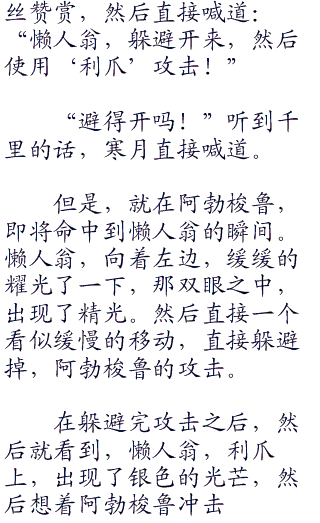 丝赞赏，然后直接喊道：
“懒人翁，躲避开来，然后
使用‘利爪’攻击！”
“避得开吗！”听到千
里的话，寒月直接喊道。
但是，就在阿勃梭鲁，
即将命中到懒人翁的瞬间。
懒人翁，向着左边，缓缓的
耀光了一下，那双眼之中，
出现了精光。然后直接一个
看似缓慢的移动，直接躲避
掉，阿勃梭鲁的攻击。
在躲避完攻击之后，然
后就看到，懒人翁，利爪
上，出现了银色的光芒，然
后想着阿勃梭鲁冲击